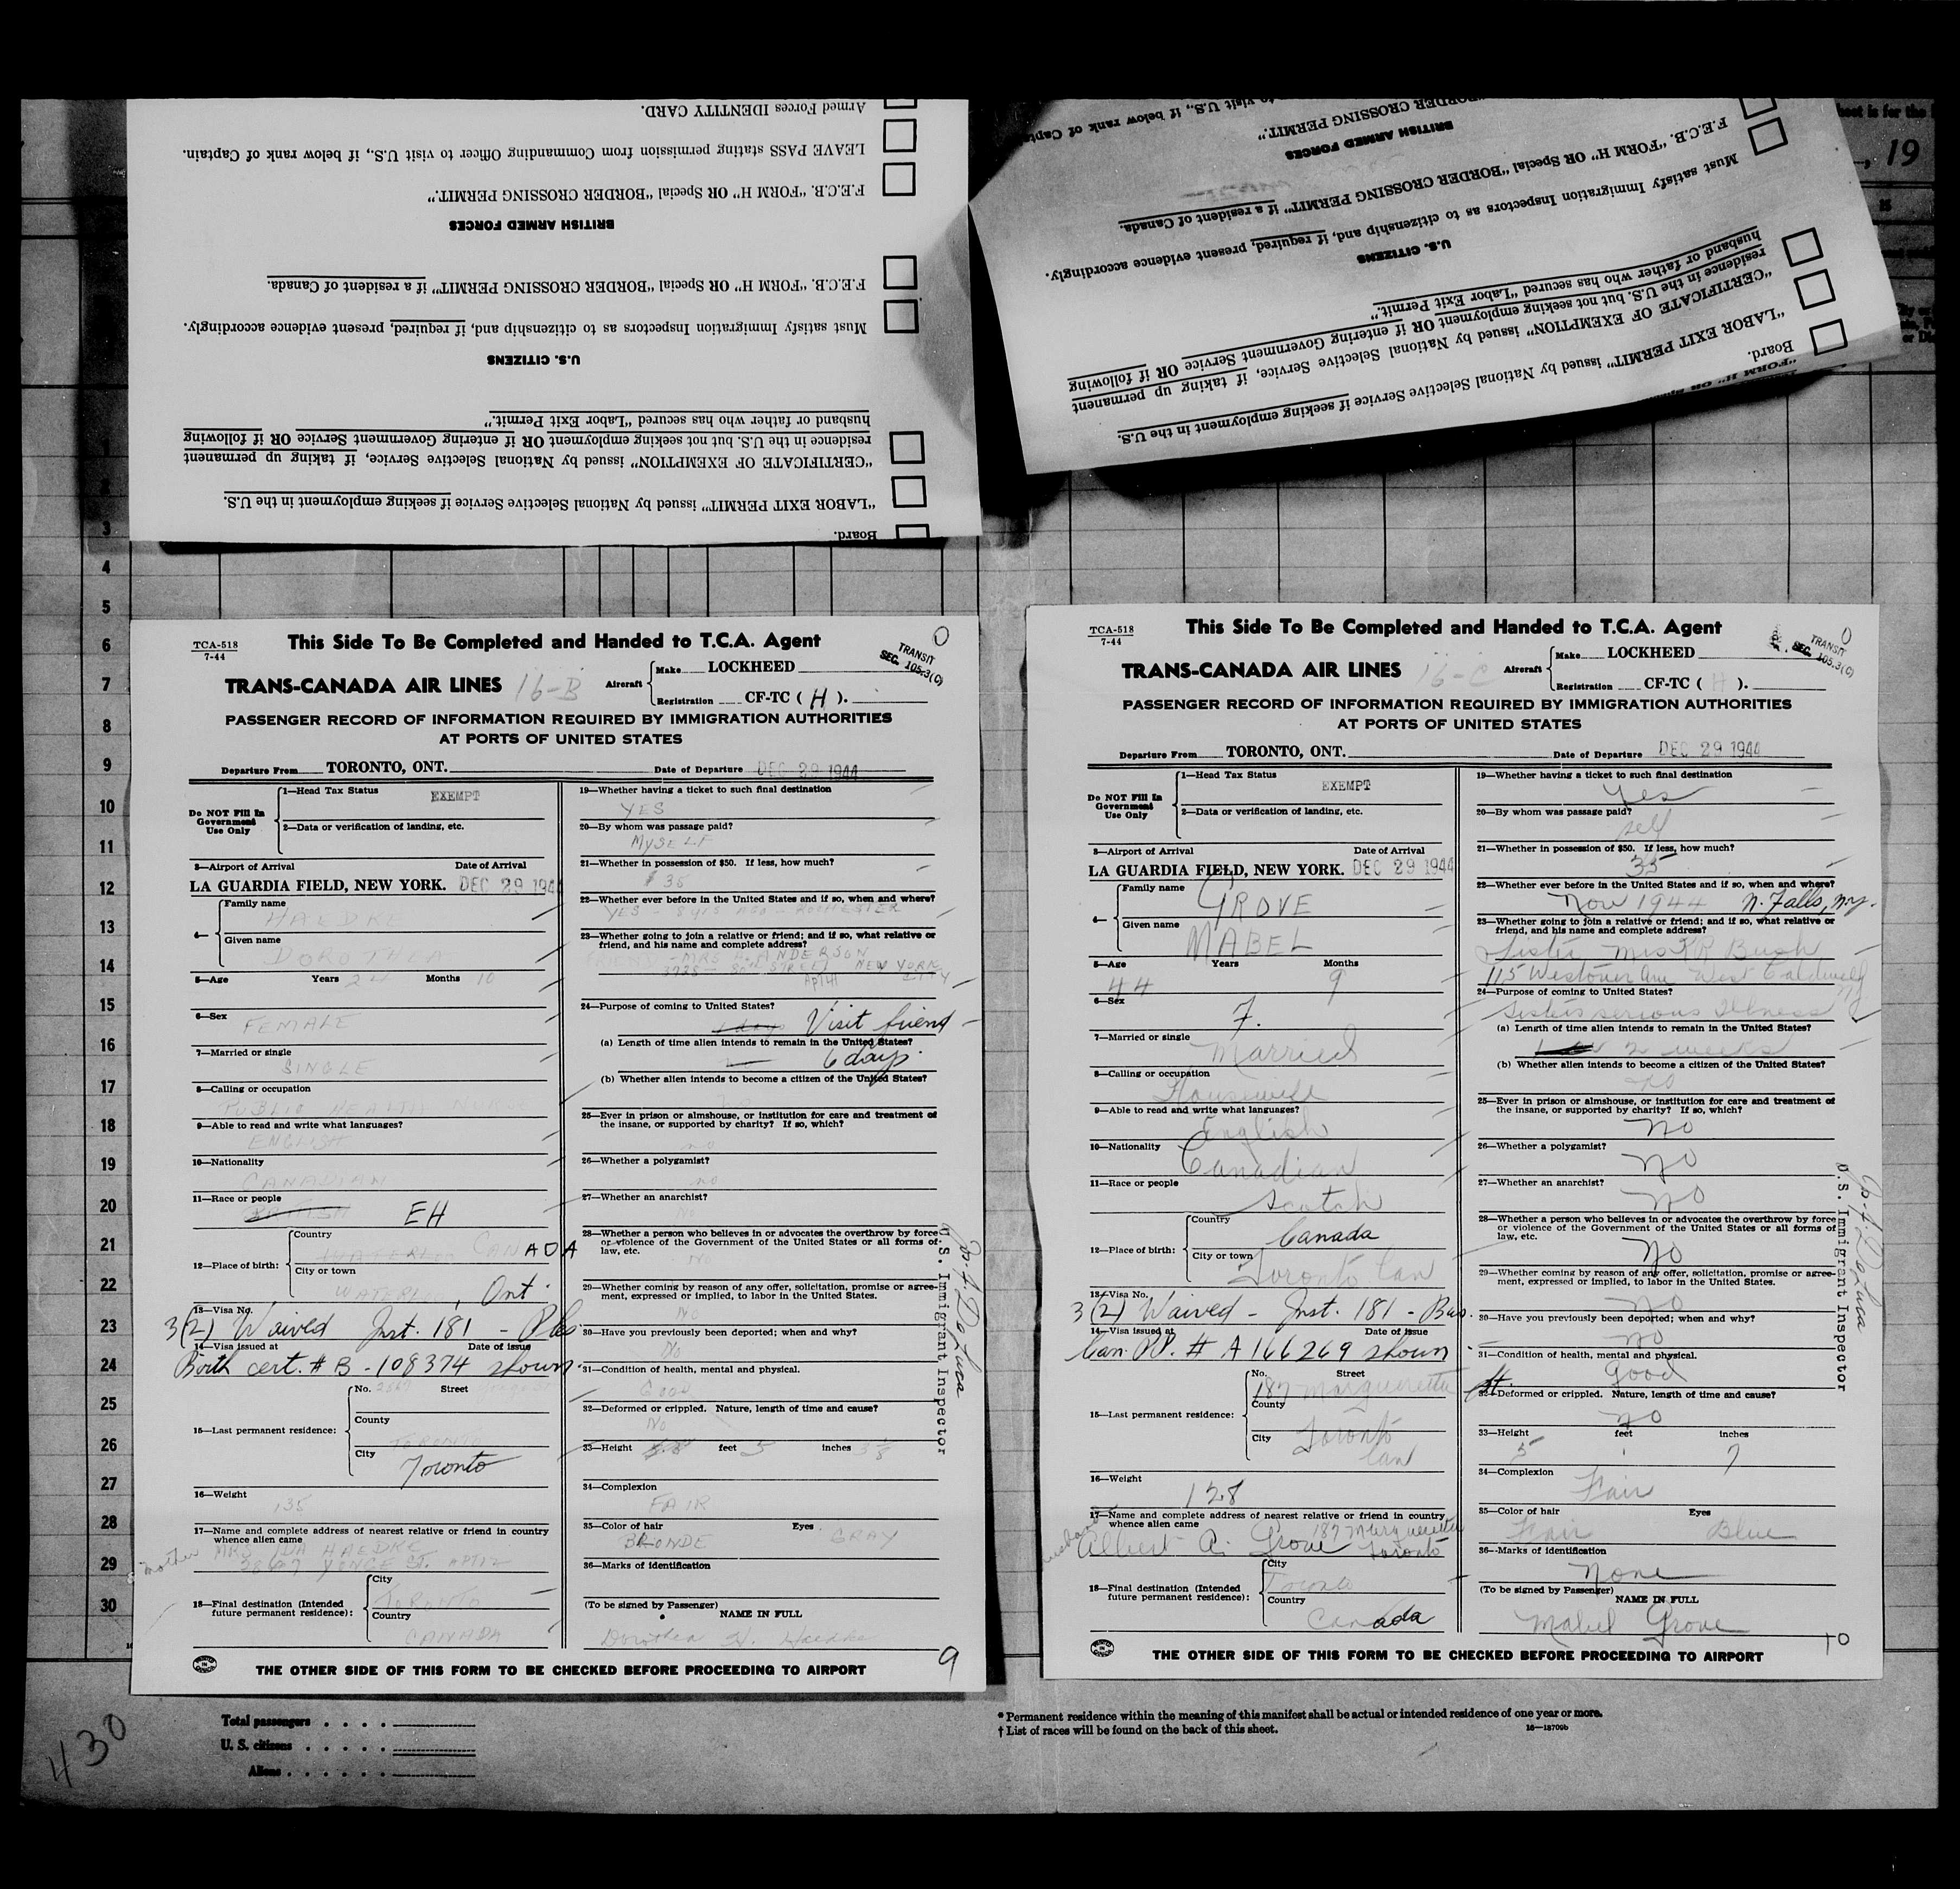 Armed Forces IDENTITY CARD.
LEAVE PASS stating permission from Commanding Officer to visit U.S., if below rank of Captain.
F.E.C.B. "FORM H" OR Special "BORDER CROSSING PERMIT."
BRITISH ARMED FORCES
F.E.C.B. "FORM H" OR Special "BORDER CROSSING PERMIT" if a resident of Canada.
Must satisfy Immigration Inspectors as to citizenship and, if required, present evidence accordingly.
U.S. CITIZENS
husband or father who has secured "Labor Exit Permit."
residence in the U.S. but not seeking employment OR if entering Government Service OR if following
"CERTIFICATE OF EXEMPTION" issued by National Selective Service, if taking up permanent
"LABOR EXIT PERMIT" issued by National Selective Service if seeking employment in the U.S.
Board.
to visit U.S., if below rank of Capt
"BORDER CROSSING PERMIT."
BRITISH ARMED FORCES
F.E.C.B. "FORM H" OR Special "BORDER CROSSING PERMIT" if a resident of Canada.
Must satisfy Immigration Inspectors as to citizenship and, if required, present evidence accordingly.
U.S. CITIZENS
husband or father who has secured "Labor Exit Permit."
residence in the U.S. but not seeking employment OR if entering Government Service OR if following
"CERTIFICATE OF EXEMPTION" issued by National Selective Service, if taking up permanent
"LABOR EXIT PERMIT" issued by National Selective Service if seeking employment in the U.S.
Board.
"FORM H"
heet is for the
, 19
3
4
5
6
7
8
9
10
11
12
13
14
15
16
17
18
19
20
21
22
23
24
25
26
27
28
29
30
TCA-518
7-44
This Side To Be Completed and Handed to T.C.A. Agent
0
TRANSIT
SEC. 105.3(C)
TRANS-CANADA AIR LINES 16-B
Aircraft
Make LOCKHEED
Registration CF-TC ( H ).
PASSENGER RECORD OF INFORMATION REQUIRED BY IMMIGRATION AUTHORITIES
AT PORTS OF UNITED STATES
Departure From TORONTO, ONT. Date of Departure DEC 29 1944
Do NOT Fill In Government Use Only
1—Head Tax Status EXEMPT
2—Data or verification of landing, etc.
3—Airport of Arrival Date of Arrival
LA GUARDIA FIELD, NEW YORK. DEC 29 194
4—
Family name HAEDKE
Given name DOROTHEA
5—Age Years 24 Months 10
6—Sex FEMALE
7—Married or single SINGLE
8—Calling or occupation
PUBLIC HEALTH
9—Able to read and write what languages?
ENGLISH
10—Nationality
CANADIAN
11—Race or people
EH
12—Place of birth:
Country CANADA
City or town
WATERLOO, Ont.
13—Visa No.
3(2) Waived Inst. 181 - Pls.
14—Visa issued at Date of issue
Birth cert. # B-108374 shown.
15—Last permanent residence:
No. Street
County
TORONTO
City Toronto
16—Weight
135
17—Name and complete address of nearest relative or friend in country
whence alien came
mother MRS IDA HAEDKE
YONGE ST. APT 12
18—Final destination (Intended
future permanent residence):
City
TORONTO
Country
CANADA
19—Whether having a ticket to such final destination
YES
20—By whom was passage paid?
MYSELF
21—Whether in possession of $50. If less, how much?
$ 35
22—Whether ever before in the United States and if so, when and where?
YES - 8 yrs AGO - ROCHESTER
23—Whether going to join a relative or friend; and if so, what relative or
friend, and his name and complete address?
FRIEND - MRS ANDERSON
STREET NEW YORK CITY
24—Purpose of coming to United States?
Visit friend
(a) Length of time alien intends to remain in the United States?
6 days.
(b) Whether alien intends to become a citizen of the United States?
25—Ever in prison or almshouse, or institution for care and treatment of
the insane, or supported by charity? If so, which?
no
26—Whether a polygamist?
no
27—Whether an anarchist?
No
28—Whether a person who believes in or advocates the overthrow by force
or violence of the Government of the United States or all forms of
law, etc.
No
29—Whether coming by reason of any offer, solicitation, promise or agree-
ment, expressed or implied, to labor in the United States.
No
30—Have you previously been deported; when and why?
No
31—Condition of health, mental and physical.
Good
32—Deformed or crippled. Nature, length of time and cause?
No
33—Height feet 5 inches
34—Complexion
FAIR
35—Color of hair Eyes
BLONDE GRAY
36—Marks of identification
(To be signed by Passenger)
NAME IN FULL
Dorothea H. Haedke
U.S. Immigrant Inspector
PRINTED IN CANADA
THE OTHER SIDE OF THIS FORM TO BE CHECKED BEFORE PROCEEDING TO AIRPORT
9
TCA-518
7-44
This Side To Be Completed and Handed to T.C.A. Agent
0
TRANSIT
SEC. 105.3(C)
TRANS-CANADA AIR LINES 16-C
Aircraft
Make LOCKHEED
Registration CF-TC ( H ).
PASSENGER RECORD OF INFORMATION REQUIRED BY IMMIGRATION AUTHORITIES
AT PORTS OF UNITED STATES
Departure From TORONTO, ONT. Date of Departure DEC 29 1944
Do NOT Fill In Government Use Only
1—Head Tax Status EXEMPT
2—Data or verification of landing, etc.
3—Airport of Arrival Date of Arrival
LA GUARDIA FIELD, NEW YORK. DEC 29 1944
4—
Family name GROVE
Given name MABEL
5—Age Years Months
44 9
6—Sex F.
7—Married or single
Married
8—Calling or occupation
Housewife
9—Able to read and write what languages?
English
10—Nationality
Canadian
11—Race or people
Scotch
12—Place of birth:
Country
Canada
City or town
Toronto Can
13—Visa No.
3(2) Waived - Inst. 181 - Bus.
14—Visa issued at Date of issue
Can. PP. # A 166269 shown
15—Last permanent residence:
No. Street
187 Margueretta St.
County
City Toronto
Can
16—Weight
128
17—Name and complete address of nearest relative or friend in country
whence alien came
husband Albert A. Grove 187 Margueretta Toronto
18—Final destination (Intended
future permanent residence):
City
Toronto
Country
Canada
19—Whether having a ticket to such final destination
Yes
20—By whom was passage paid?
self
21—Whether in possession of $50. If less, how much?
35
22—Whether ever before in the United States and if so, when and where?
Nov 1944 N. Falls, N.Y.
23—Whether going to join a relative or friend; and if so, what relative or
friend, and his name and complete address?
Sister Mrs K R Bush
115 Westover Ave West Caldwell NJ
24—Purpose of coming to United States?
Sisters serious Illness
(a) Length of time alien intends to remain in the United States?
2 weeks
(b) Whether alien intends to become a citizen of the United States?
no
25—Ever in prison or almshouse, or institution for care and treatment of
the insane, or supported by charity? If so, which?
no
26—Whether a polygamist?
no
27—Whether an anarchist?
no
28—Whether a person who believes in or advocates the overthrow by force
or violence of the Government of the United States or all forms of
law, etc.
no
29—Whether coming by reason of any offer, solicitation, promise or agree-
ment, expressed or implied, to labor in the United States.
no
30—Have you previously been deported; when and why?
no
31—Condition of health, mental and physical.
Good
32—Deformed or crippled. Nature, length of time and cause?
no
33—Height feet inches
5 7
34—Complexion
Fair
35—Color of hair Eyes
Fair Blue
36—Marks of identification
None
(To be signed by Passenger)
NAME IN FULL
Mabel Grove
U.S. Immigrant Inspector
PRINTED IN CANADA
THE OTHER SIDE OF THIS FORM TO BE CHECKED BEFORE PROCEEDING TO AIRPORT
10
Total passengers
U. S. citizens
Aliens
* Permanent residence within the meaning of this manifest shall be actual or intended residence of one year or more.
† List of races will be found on the back of this sheet.
16—18709b
430